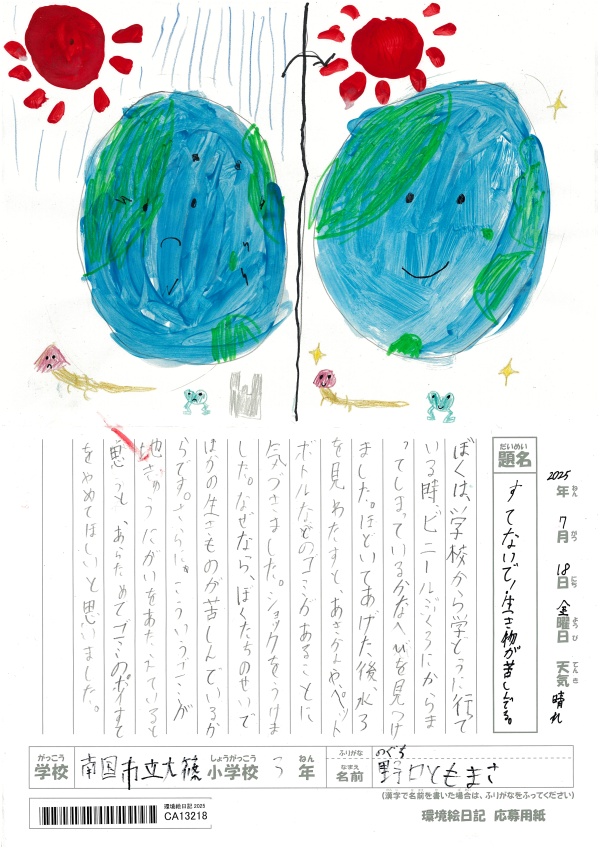 2025年 7月 18日 金曜日 天気 晴れ
ねん がつ にち ようび てんき
だいめい
題名
すてないで!生き物が苦しんでる。
ぼくは、学校から学どうに行って
いる時、ビニールぶくろにからま
ってしまっているかなへびを見つけ
ました。ほどいてあげた後、水ろ
を見わたすと、あきかんやペット
ボトルなどのゴミがあることに
気づきました。ショックをうけま
した。なぜなら、ぼくたちのせいで
ほかの生きものが苦しんでいるか
らです。さらに、こういうゴミが
地きゅうにがいをあたえていると
思うと、あらためてゴミのポイすて
をやめてほしいと思いました。
がっこう
学校
南国市立大篠
しょうがっこう
小学校
ねん
年
ふりがな
のぐち
なまえ
名前
野口ともまさ
(漢字で名前を書いた場合は、ふりがなをふってください)
環境絵日記 2025
CA13218
環境絵日記 応募用紙